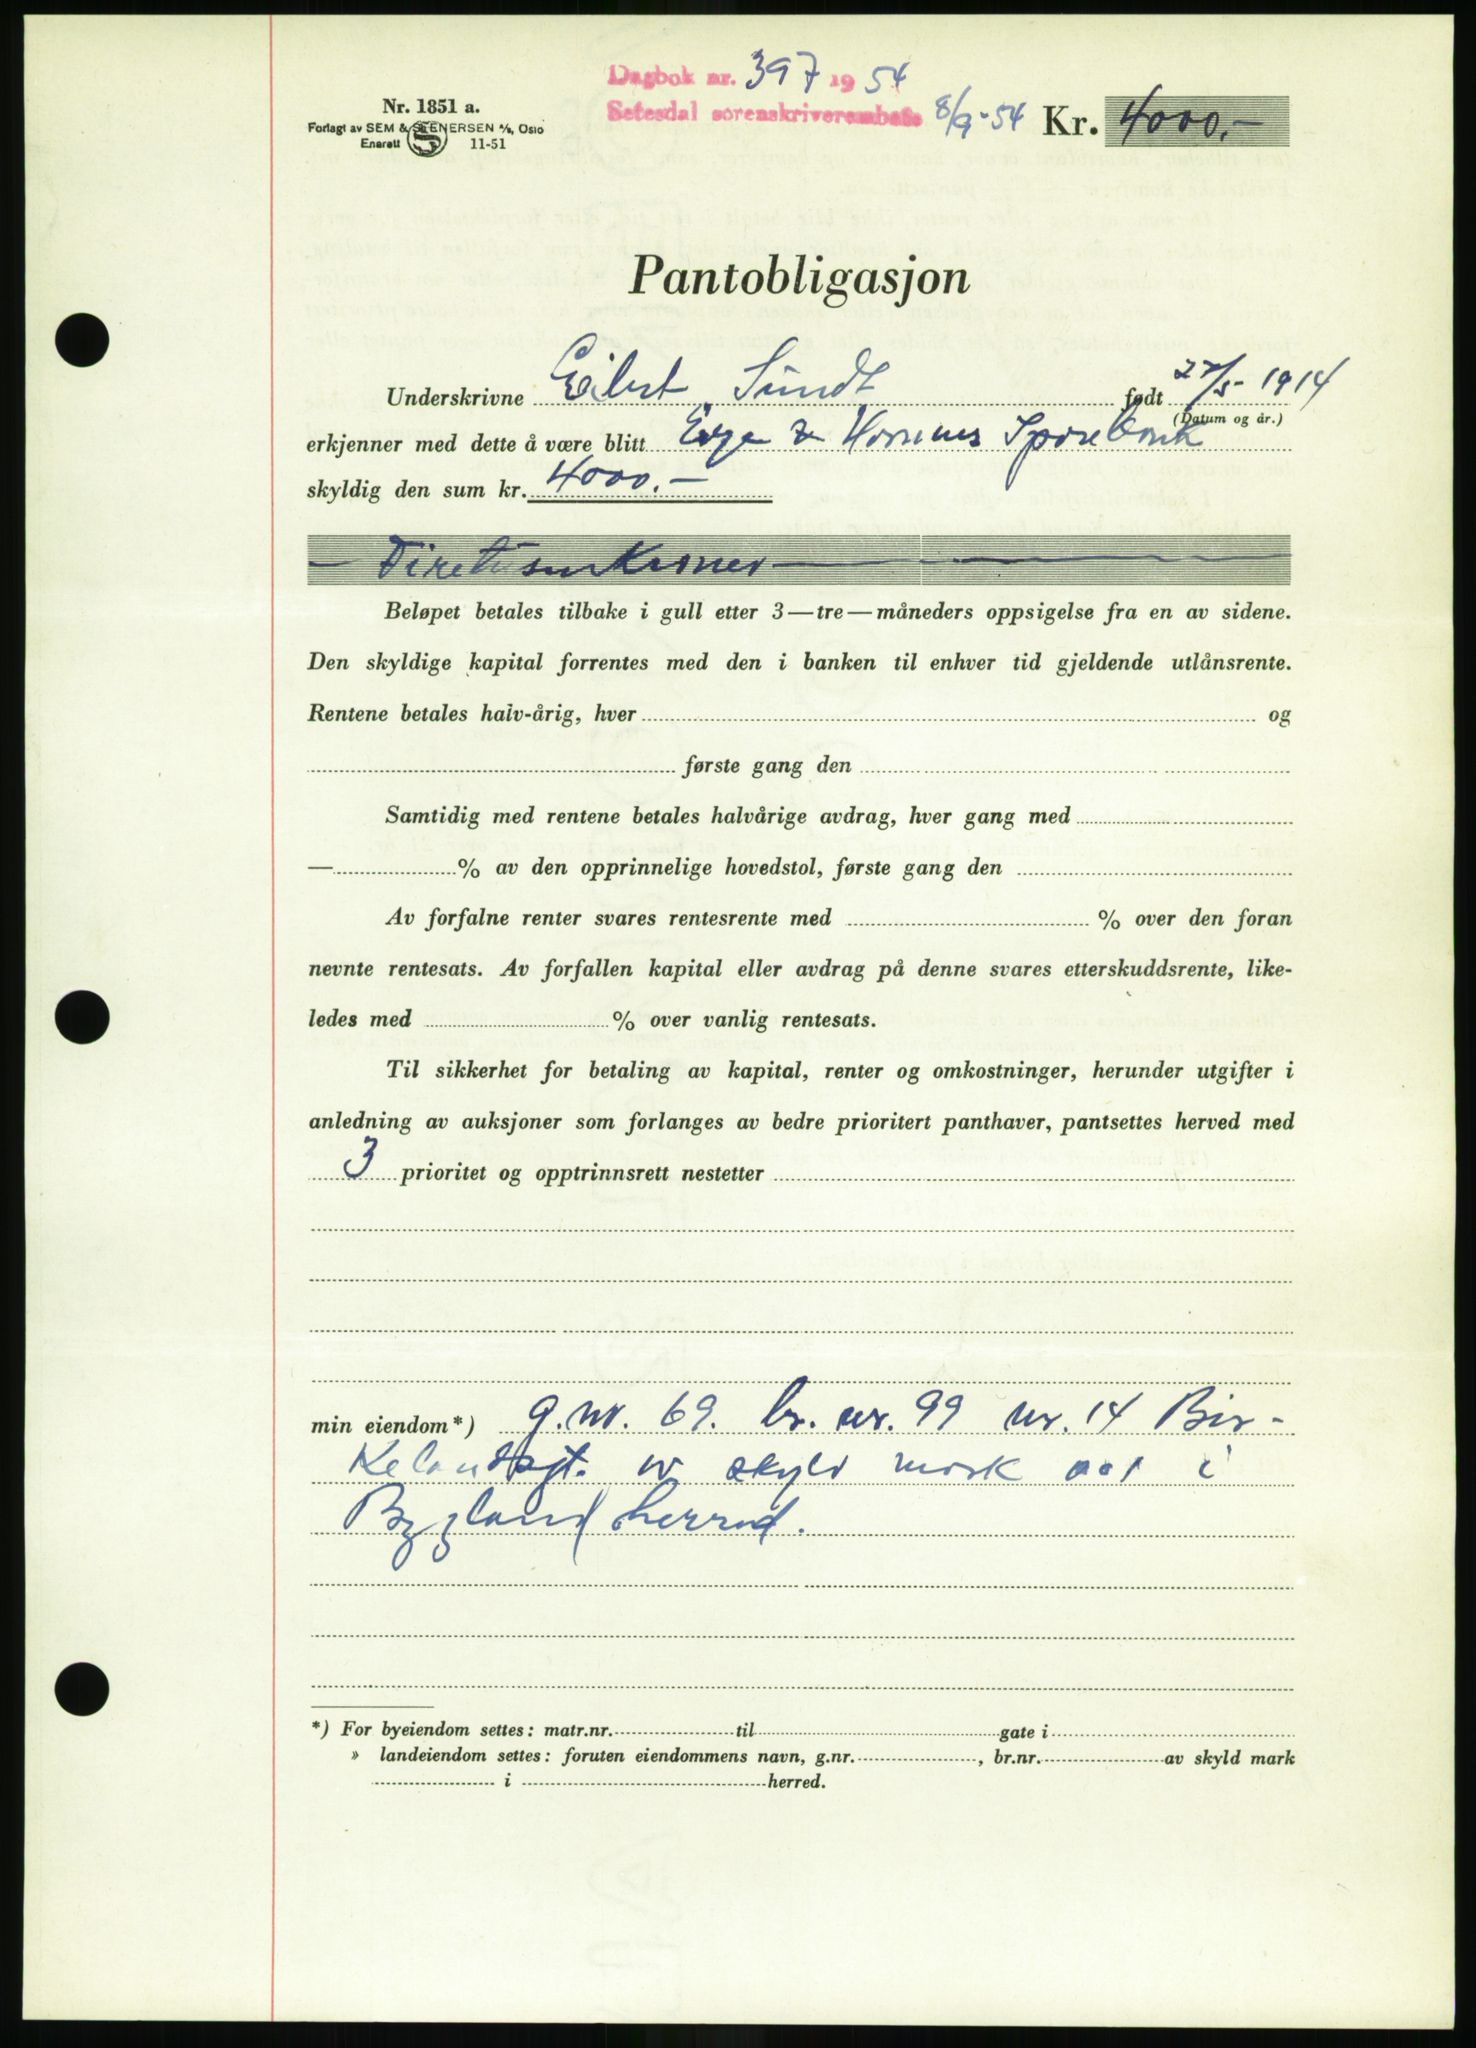 Dagbok nr. 397 1954
Setesdal sorenskriverembete 8/9-54
Nr. 1851 a.
Forlagt av SEM & STENERSEN A/S, Oslo
Enerett 11-51
Kr. 4000.-
Pantobligasjon
Underskrivne Eilert Sundt født 22/5-1914
(Datum og år.)
erkjenner med dette å være blitt Evje & Hornnes Sparebank
skyldig den sum kr. 4000.-
- Firetusen Kroner -
Beløpet betales tilbake i gull etter 3 — tre — måneders oppsigelse fra en av sidene.
Den skyldige kapital forrentes med den i banken til enhver tid gjeldende utlånsrente.
Rentene betales halv-årig, hver og
første gang den
Samtidig med rentene betales halvårige avdrag, hver gang med
— % av den opprinnelige hovedstol, første gang den
Av forfalne renter svares rentesrente med % over den foran
nevnte rentesats. Av forfallen kapital eller avdrag på denne svares etterskuddsrente, like-
ledes med % over vanlig rentesats.
Til sikkerhet for betaling av kapital, renter og omkostninger, herunder utgifter i
anledning av auksjoner som forlanges av bedre prioritert panthaver, pantsettes herved med
3 prioritet og opptrinnsrett nestetter
min eiendom*) g.nr. 69. br. nr. 99 nr. 14 Bir-
kelandsgt. av skyld mark 0.01 i
Bygland herred.
*) For byeiendom settes: matr.nr. til gate i
» landeiendom settes: foruten eiendommens navn, g.nr. , br.nr. av skyld mark
i herred.